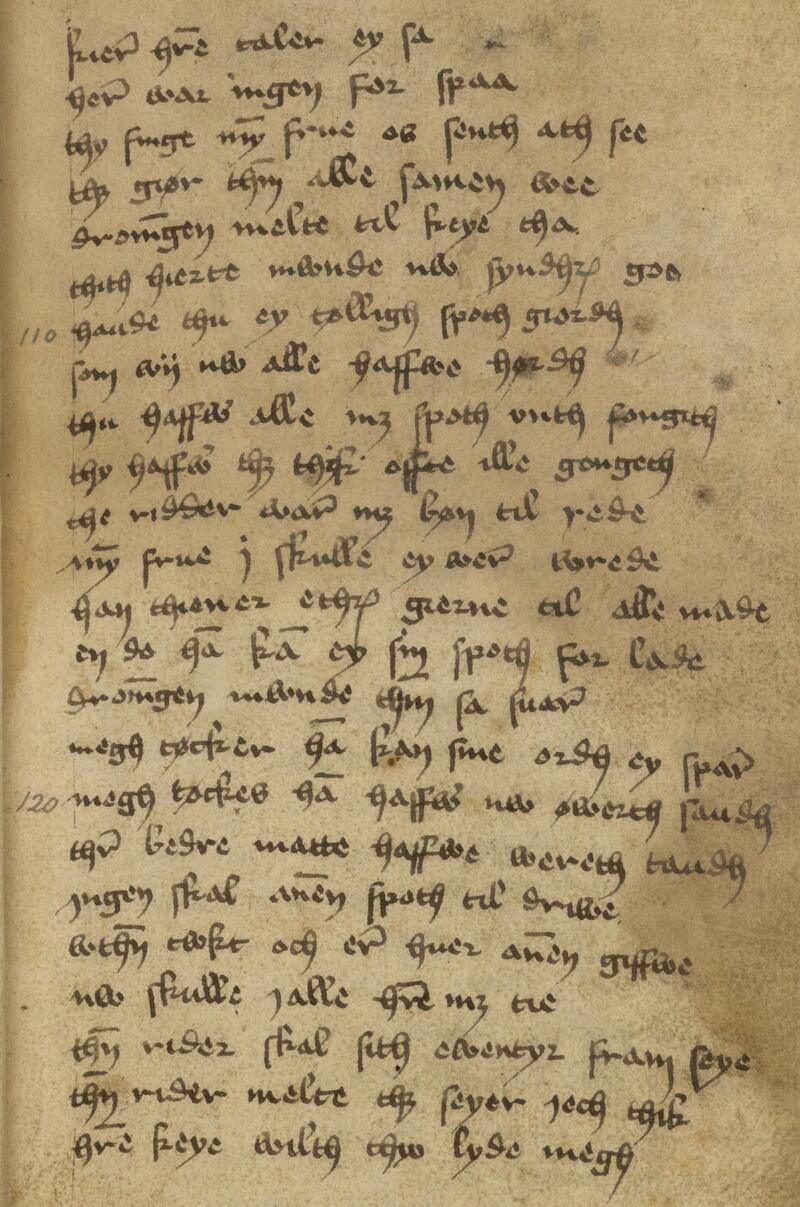 kierͬ hr̄e taler ey sa
herͬ war ingen for spaa
thy finge my̅ frue os senth ath see
thꝫ giør thm̅ alle samen wee
drom̅gen melte til keye tha
thith hierte mwnde nw syndhꝝ goo
110 haude thu ey tølligh spoth giordh
som wij nw alle haffwe hørdh
thu haffwͬ alle mꝫ spoth vnth fongith
thy haffwͬ thꝫ thik offte ille gongeth
the ridder warͬ mꝫ bøn til rede
my̅ frue j skulle ey werͬ wrede
han thiener ethꝝ gierne til alle made
en do ha̅ ka̅ ey sin spoth for lade
drom̅gen mwnde thm̅ sa suarͬ
megh tøcker ha̅ kan sine ordh ey sparͬ
120 megh tøckes ha̅ haffwͬ nw øwerth saudh
thr̅ bedre matte haffwe wereth taudh
jngen skal ane̅n spoth til driwe
wthn̅ twkt och erͬ huer ane̅n giffwe
nw skulle j alle hr̄e mꝫ tie
thn̅ rider skal sith ewentyr fram seye
thn̅ rider melte thꝫ seyer jech thik
hr̄e keye wilth thw lyde megh